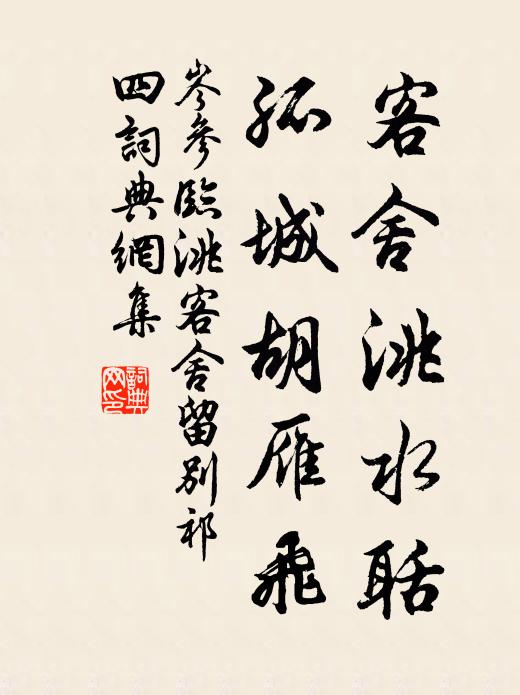 客舍洮水聒
孤城胡雁飛
岑參臨洮客舍留別祁
四詞典網集
詞典網印